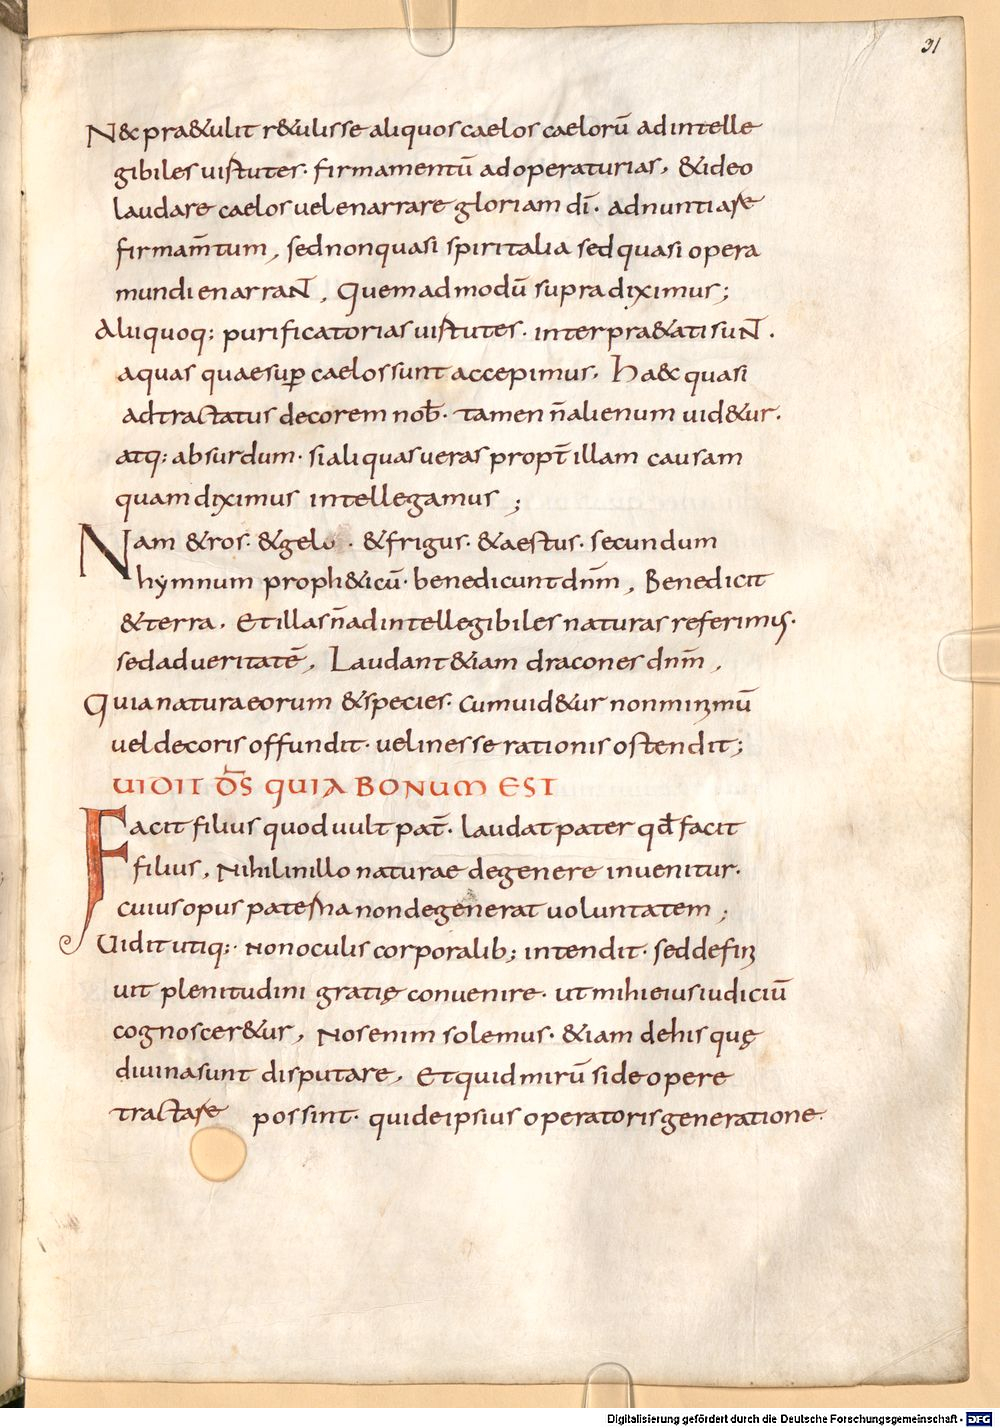 31
N&c pra&ulit r&ulisse aliquos caelos caelorū adintelle
gibiles uirtutes· firmamentū adoperaturias, &ideo
laudare caelos uel enarrare gloriam dī· adnuntiare
firmam̄tum, sed non quasi spiritalia sed quasi opera
mundi enarraNT, Quemadmodū supra diximus;
Aliquoq; purificatorias uirtutes· interpra&ati suNT.
aquas quae sup̱ caelos sunt accepimus, ha&c quasi
ad tractatus decorem nob̄· tamen n̄ alienum uid&ur.
atq; absurdum· si aliquas ueras propt̄ illam causam
quam diximus intellegamus;
Nam &ros· &gelu · &frigus· &aestus· secundum
hẏmnum proph&icū· benedicunt dn̄m, Benedicit
&terra. Et illas n̄ ad intellegibiles naturas referimus·
sed ad ueritatē, Laudant &iam dracones dn̄m,
Quia natura eorum &species· cum uid&ur non minimū
uel decoris offundit· uel inesse rationis ostendit;
UIDIT D̄S QUIA BONUM EST
Facit filius quod uult pat̄· laudat pater qd̄ facit
filius, Nihil in illo naturae degenere inuenitur.
cuius opus paterna non degenerat uoluntatem;
Uidit utiq;· non oculis corporalib; intendit· sed defin
uit plenitudini gratię conuenire· ut mihi eius iudiciū
cognoscer&ur, Nos enim solemus· &iam de his quę
diuina sunt disputare, Et quid mirū si de opere
tractare possint· qui de ipsius operatoris generatione·
Digitalisierung gefördert durch die Deutsche Forschungsgemeinschaft - DFG